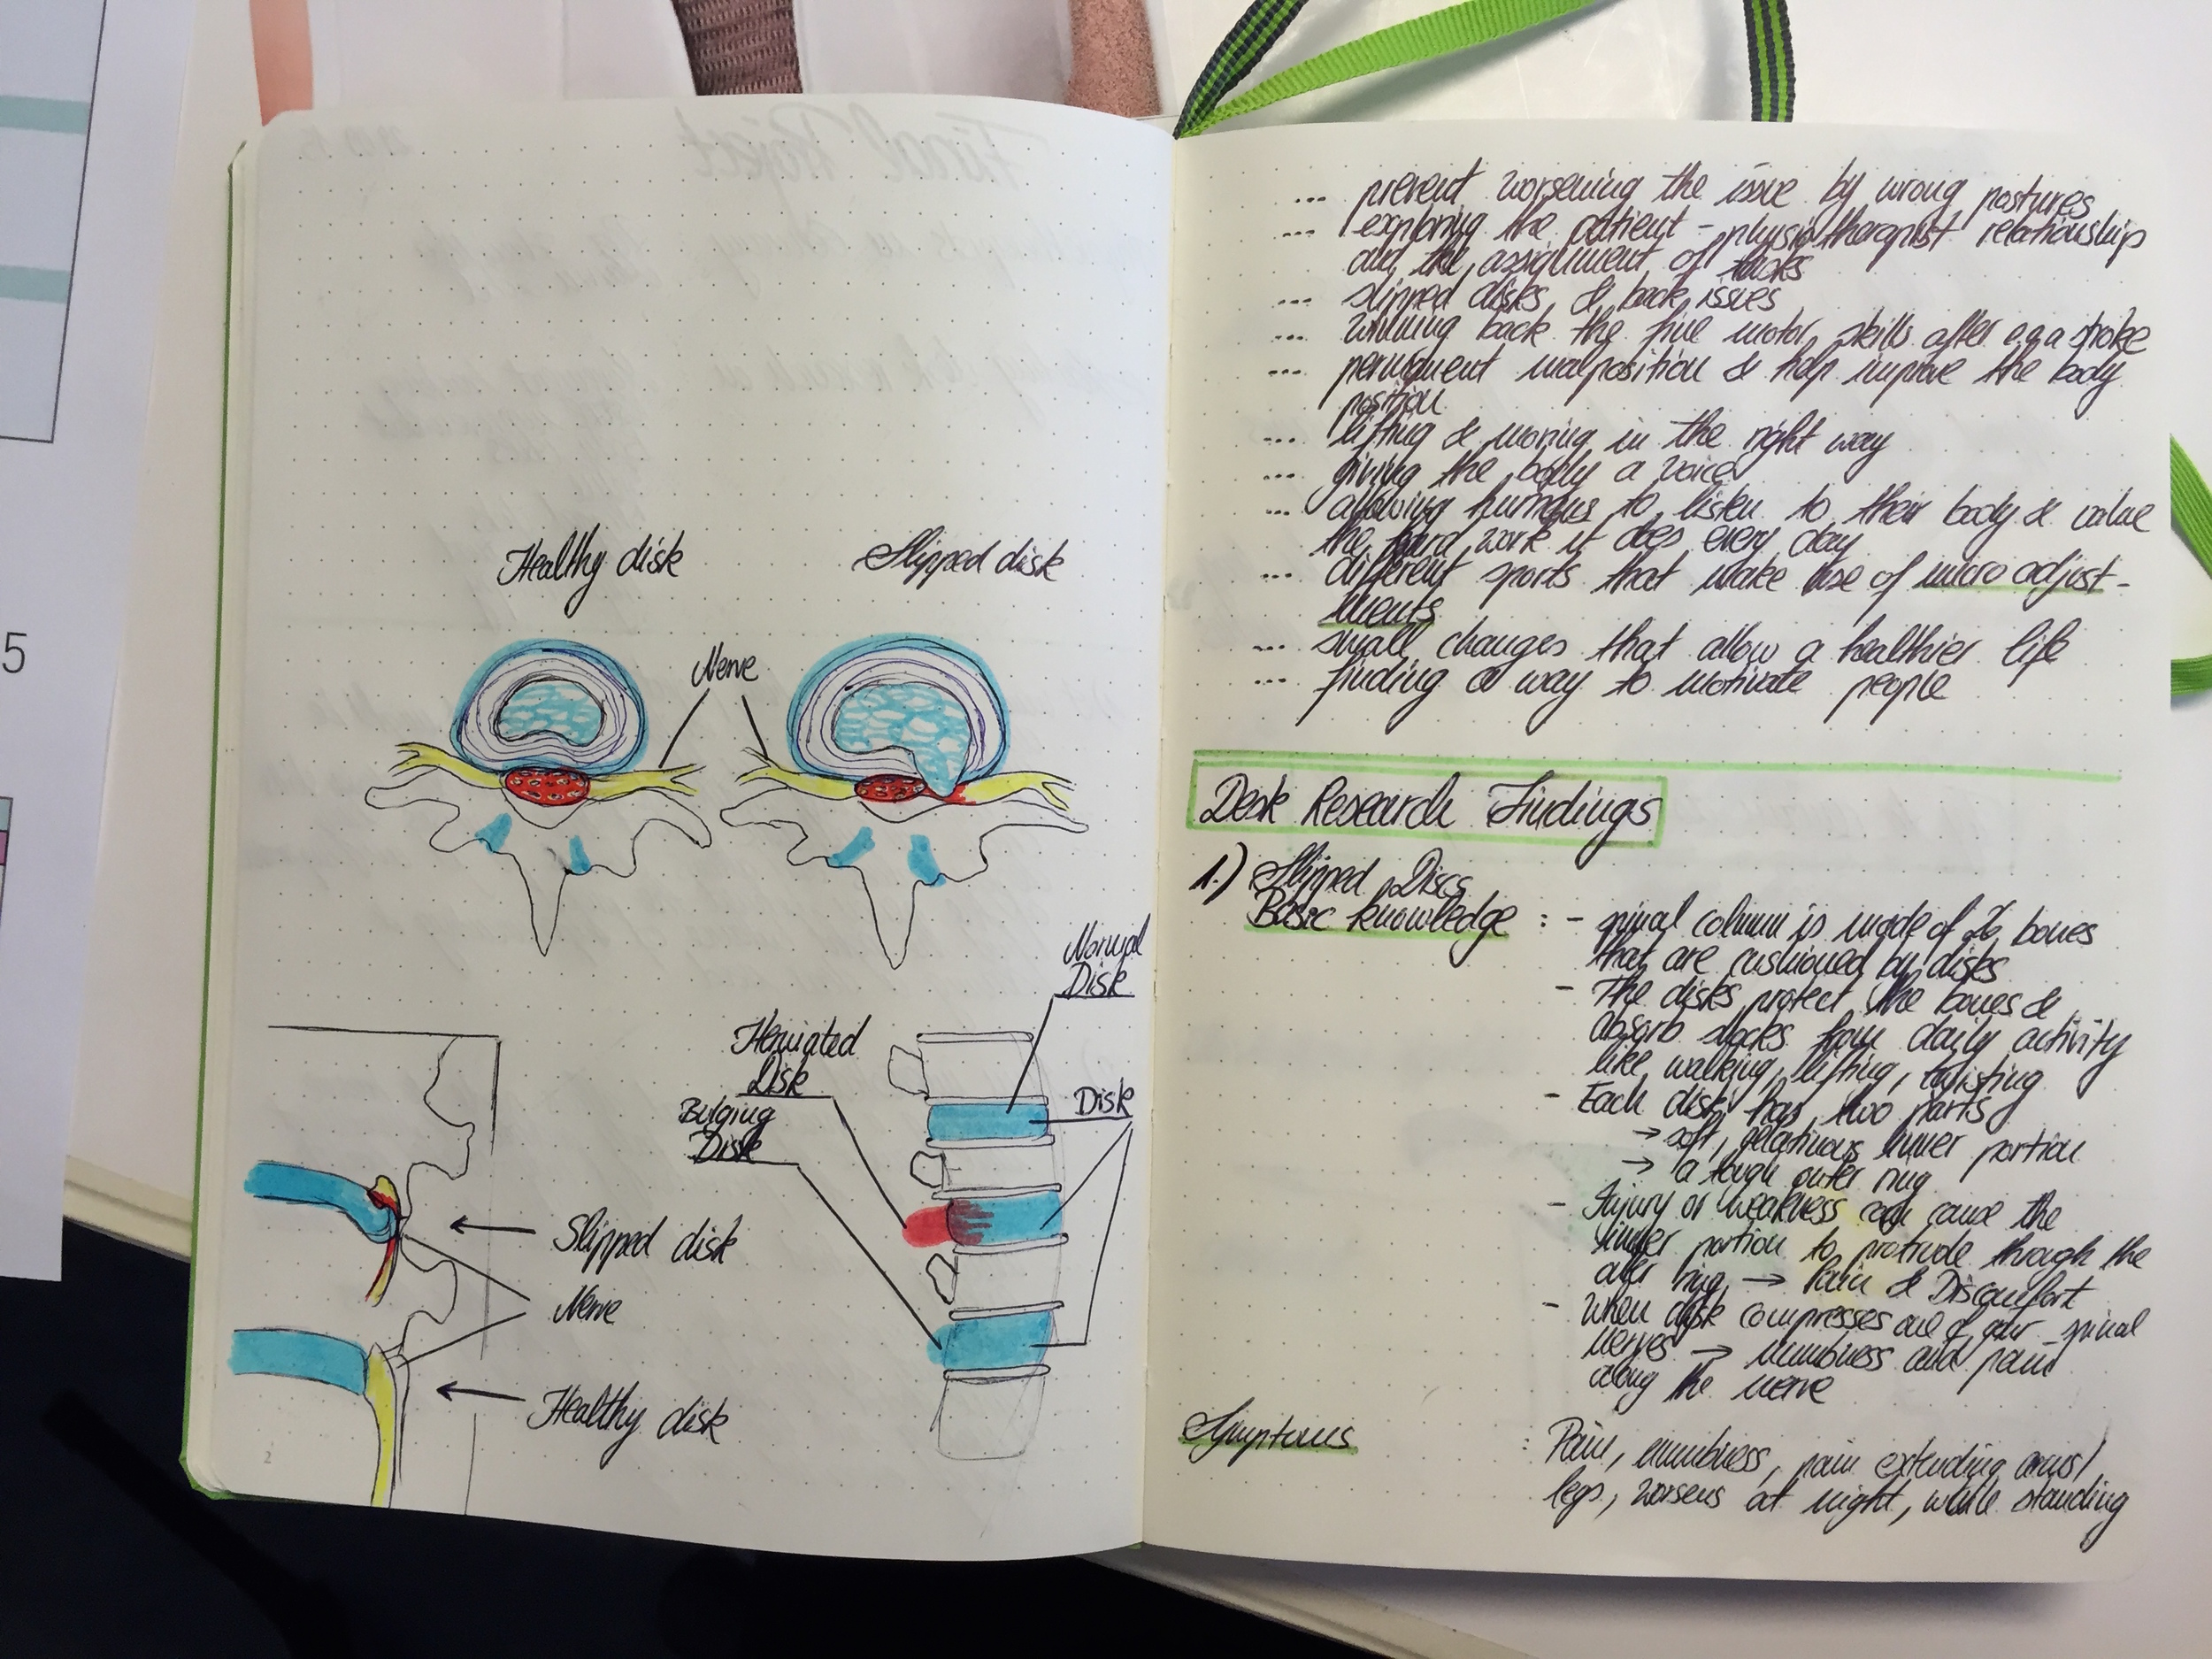 5
Final Project
Healthy disk
Slipped disk
Nerve
Normal
Disk
Herniated
Disk
Bulging
Disk
Disk
Slipped disk
Nerve
Healthy disk
2
... prevent worsening the issue by wrong postures
... exploring the patient - physiotherapist relationship
and the assignment of tasks
... slipped disks & back issues
... winning back the fine motor skills after e.g. a stroke
... permanent malposition & help improve the body
position
... lifting & moving in the right way
... giving the body a voice
... allowing humans to listen to their body & value
the hard work it does every day
... different sports that make use of micro adjust-
ments
... small changes that allow a healthier life
... finding a way to motivate people
Desk Research Findings
1.) Slipped Discs
Basic knowledge : - spinal column is made of 26 bones
that are cushioned by disks
- The disks protect the bones &
absorb shocks from daily activity
like walking, lifting, twisting
- Each disk has two parts
→ soft, gelatinous inner portion
→ a tough outer ring
- Injury or weakness can cause the
inner portion to protrude through the
outer ring → Pain & Discomfort
- When disk compresses one of our spinal
nerves → numbness and pain
along the nerve
Symptoms : Pain, numbness, pain extending arms/
legs, worsens at night, while standing